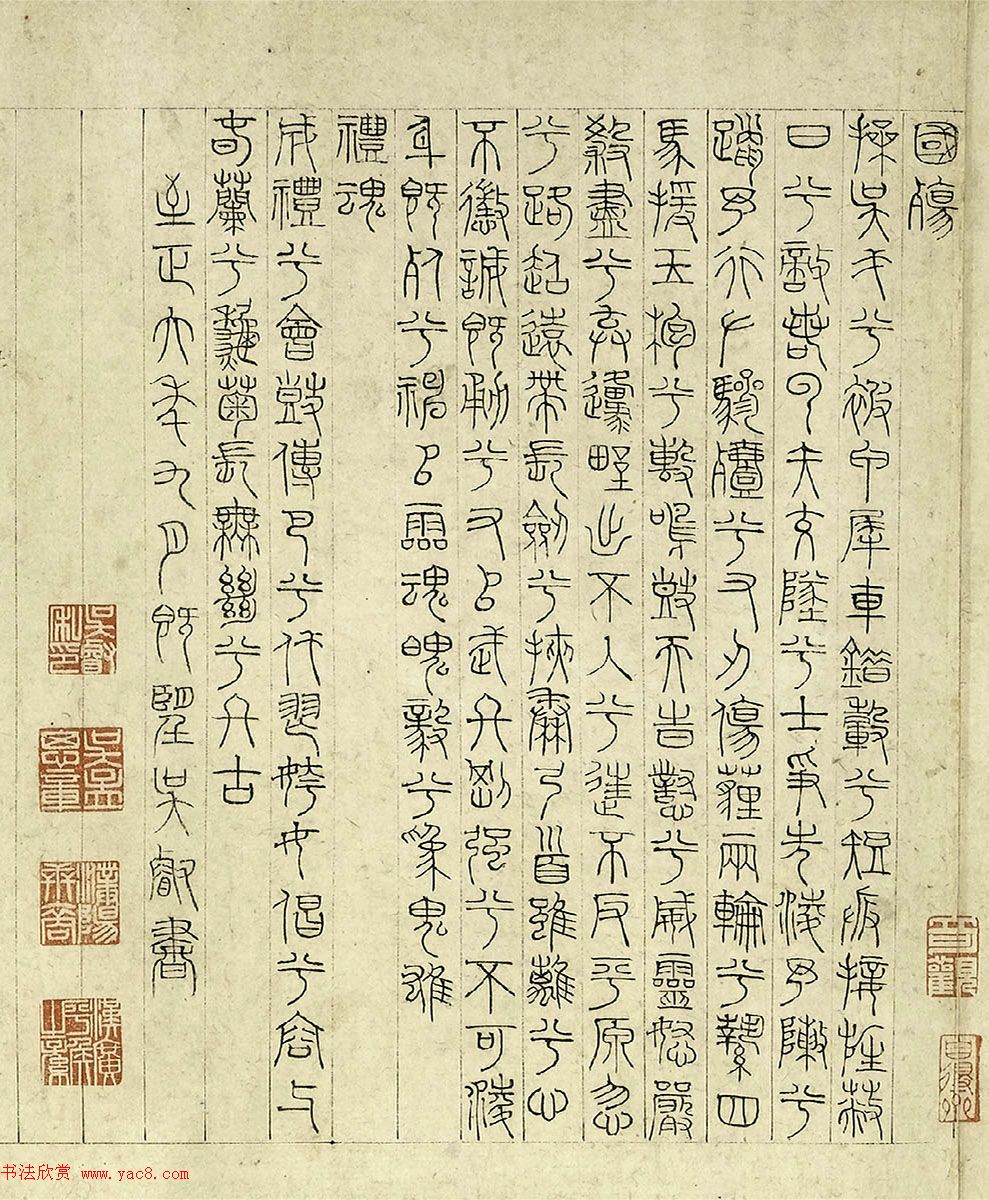 國殤
操吳戈兮被甲犀車錯轂兮短兵接旌蔽
日兮敵若雲矢交墜兮士爭先淩余陣兮
躐余行左驂殪兮右刃傷霾兩輪兮縶四
馬援玉枹兮擊鳴鼓天告懟兮威靈怒嚴
殺盡兮棄邍壄出不入兮往不反平原忽
兮路超遠帶長劍兮挾秦弓首雖離兮心
不懲誠既勇兮又以武終剛強兮不可淩
身既死兮神以靈魂魄毅兮為鬼雄
禮魂
成禮兮會鼓傳芭兮代舞姱女倡兮容與
春蘭兮秋菊長無絕兮終古
至正六年九月既望吳叡書
吳叡私印
吳孟思章
书法欣赏 www.yac8.com